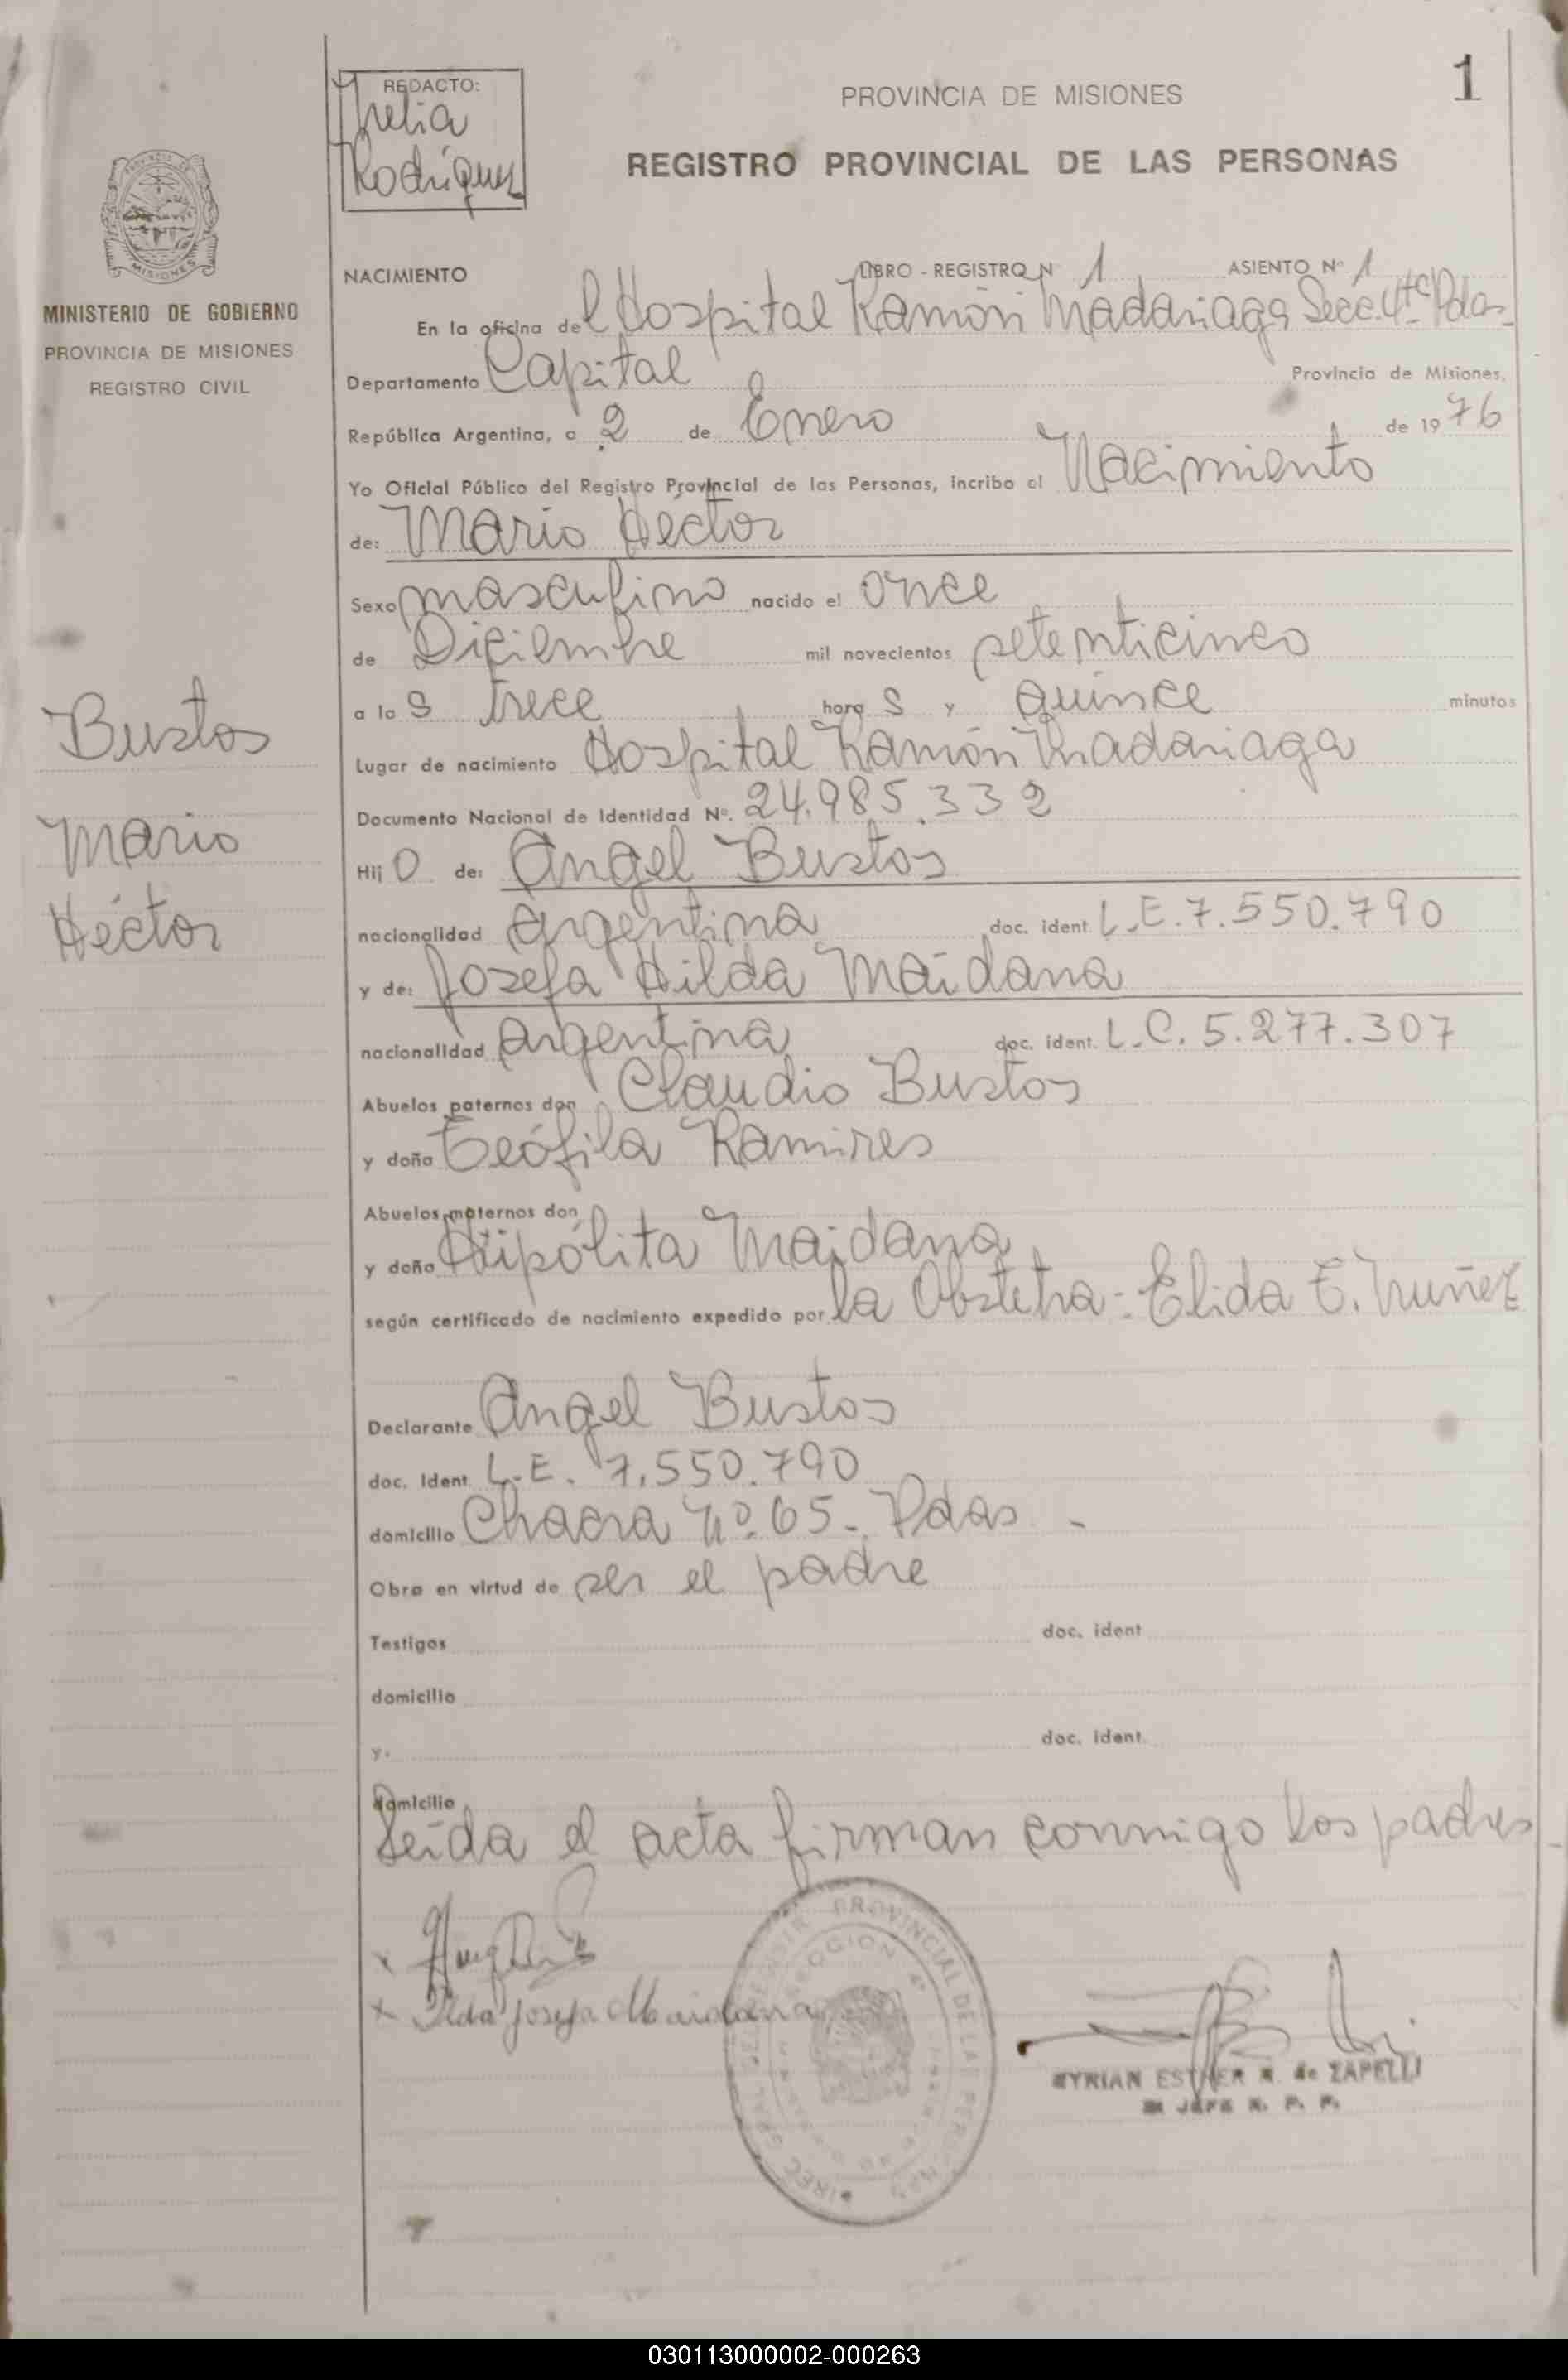 REDACTO:
Rodriguez
PROVINCIA DE MISIONES
1
REGISTRO PROVINCIAL DE LAS PERSONAS
PROVINCIA DE MISIONES
MINISTERIO DE GOBIERNO
PROVINCIA DE MISIONES
REGISTRO CIVIL
Bustos
Mario
Héctor
NACIMIENTO LIBRO - REGISTRO N 1 ASIENTO Nº 1
En la oficina del Hospital Ramón Madariaga Secc. 4ta Pdas.
Departamento Capital Provincia de Misiones,
República Argentina, a 2 de Enero de 1976
Yo Oficial Público del Registro Provincial de las Personas, incribo el Nacimiento
de: Mario Héctor
Sexo masculino nacido el once
de Diciembre mil novecientos setenticinco
a las trece horas y quince minutos
Lugar de nacimiento Hospital Ramón Madariaga
Documento Nacional de Identidad Nº. 24.985.332
Hijo de: Angel Bustos
nacionalidad Argentina doc. ident. L.E. 7.550.790
y de: Josefa Hilda Maidana
nacionalidad Argentina doc. ident. L.C. 5.277.307
Abuelos paternos don Claudio Bustos
y doña Teófila Ramires
Abuelos maternos don
y doña Hipólita Maidana
según certificado de nacimiento expedido por la Obstetra: Elida E. Nuñez
Declarante Angel Bustos
doc. Ident. L.E. 7.550.790
domicilio Chacra Nº. 65 - Pdas -
Obra en virtud de ser el padre
Testigos doc. ident.
domicilio
y. doc. ident.
domicilio
Leída el acta firman conmigo los padres
x
x Ilda Josefa Maidana
PROVINCIAL DE LAS PERSONAS
MYRIAN ESTHER R. de ZAPELLI
JEFE R. P. P.
030113000002-000263